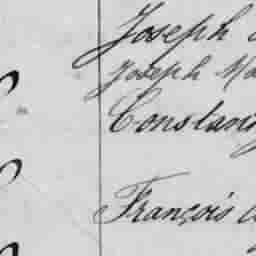 Joseph
Joseph Ma
Constan
François